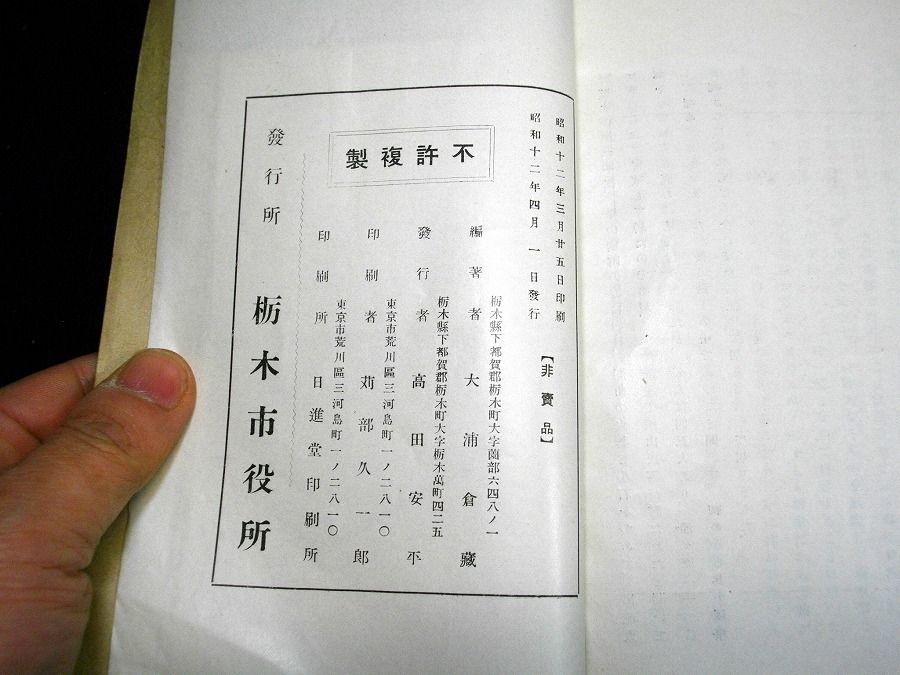 昭和十二年三月廿五日印刷
昭和十二年四月一日發行
【非賣品】
不許複製
栃木縣下都賀郡栃木町大字薗部六四八ノ一
編著者 大浦倉藏
栃木縣下都賀郡栃木町大字栃木萬町四二五
發行者 高田安平
東京市荒川區三河島町一ノ二八一〇
印刷者 苅部久一郎
東京市荒川區三河島町一ノ二八一〇
印刷所 日進堂印刷所
發行所 栃木市役所